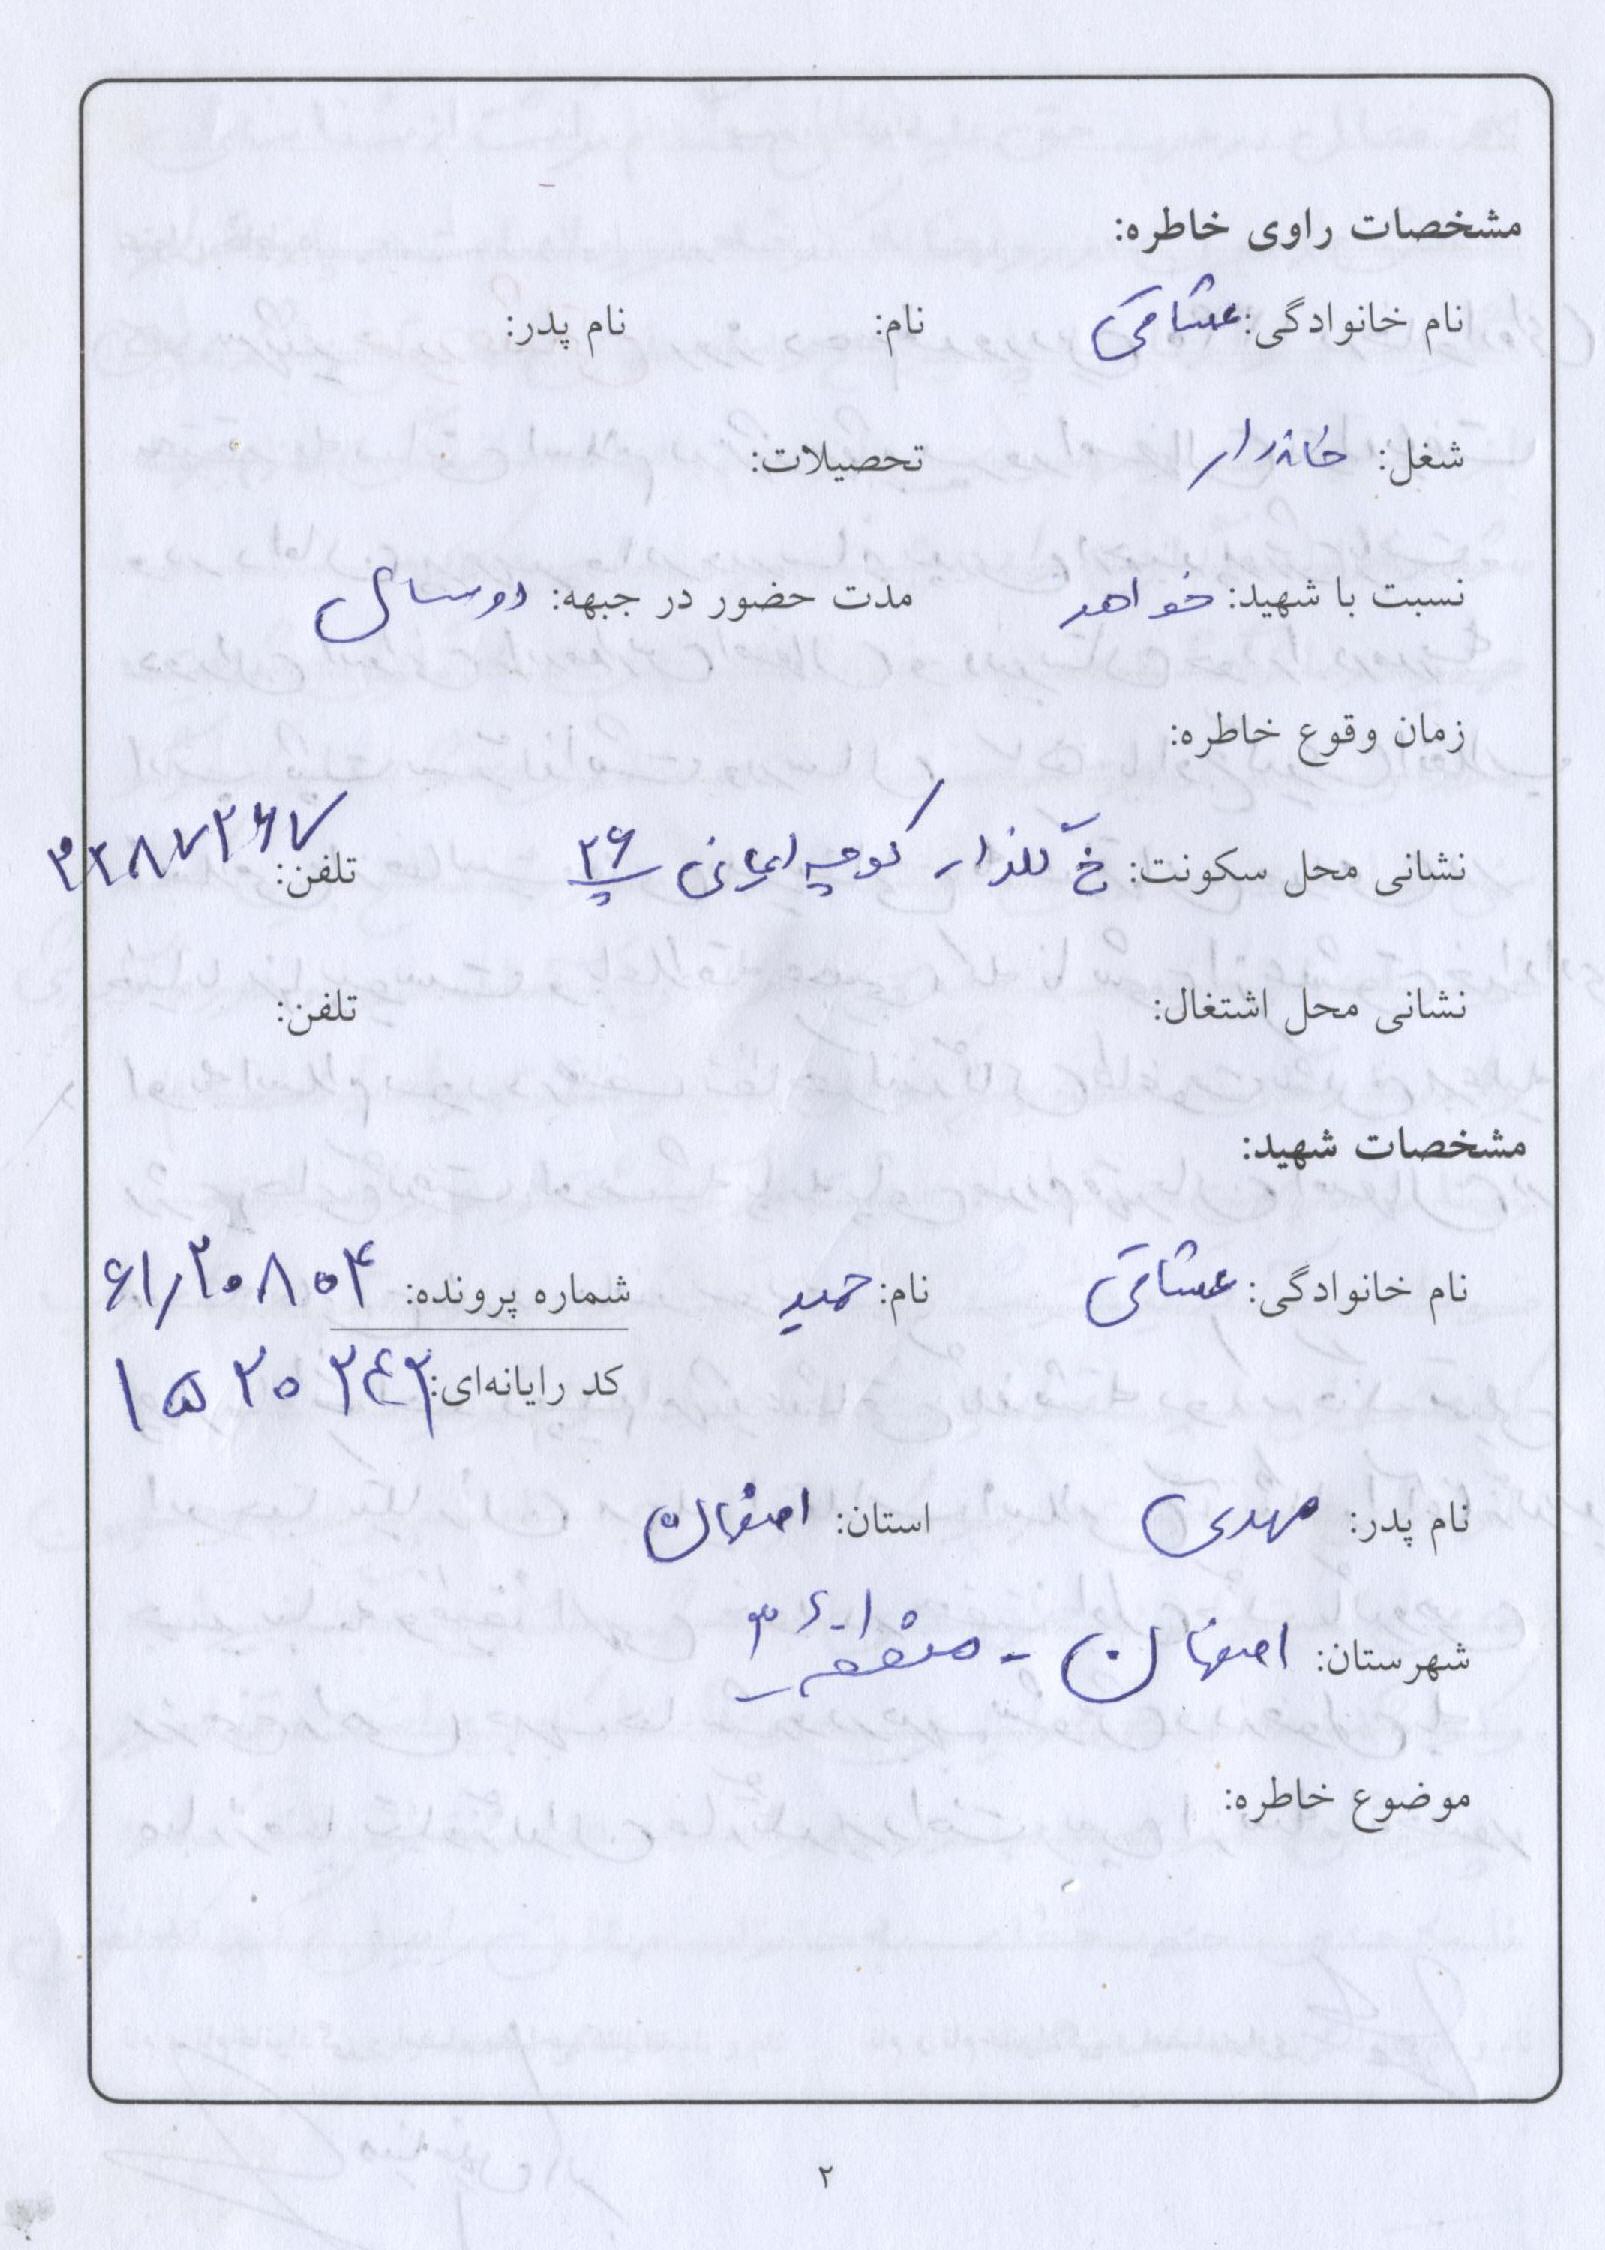 مشخصات راوی خاطره:
نام خانوادگی: عشاقی نام: نام پدر:
شغل: خانه‌دار تحصیلات:
نسبت با شهید: خواهر مدت حضور در جبهه: دو سال
زمان وقوع خاطره:
نشانی محل سکونت: خ گلزار کوچه ایمانی پ ۲۶ تلفن:
نشانی محل اشتغال: تلفن:
مشخصات شهید:
نام خانوادگی: عشاقی نام: حمید شماره پرونده: ۶۱/۲۰۸۰۴
کد رایانه‌ای: ۱۵۲۰۲۴۲
نام پدر: مهدی استان: اصفهان
شهرستان: اصفهان - منطقه ۳
موضوع خاطره:
۲